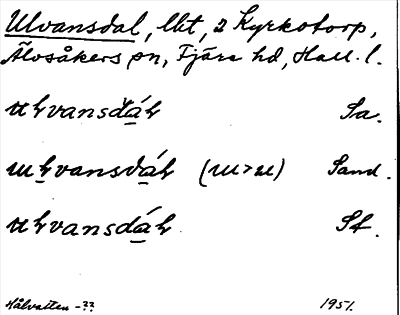 Ulvansdal, lht, 2 Kyrkotorp,
Älvsåkers sn, Fjäre hd, Hall. l.
uƚvansdáƚ Sa.
ɯƚvansdáƚ (ɯ>u) Sand.
uƚvansdáƚ St.
Hålvatten -?? 1951.